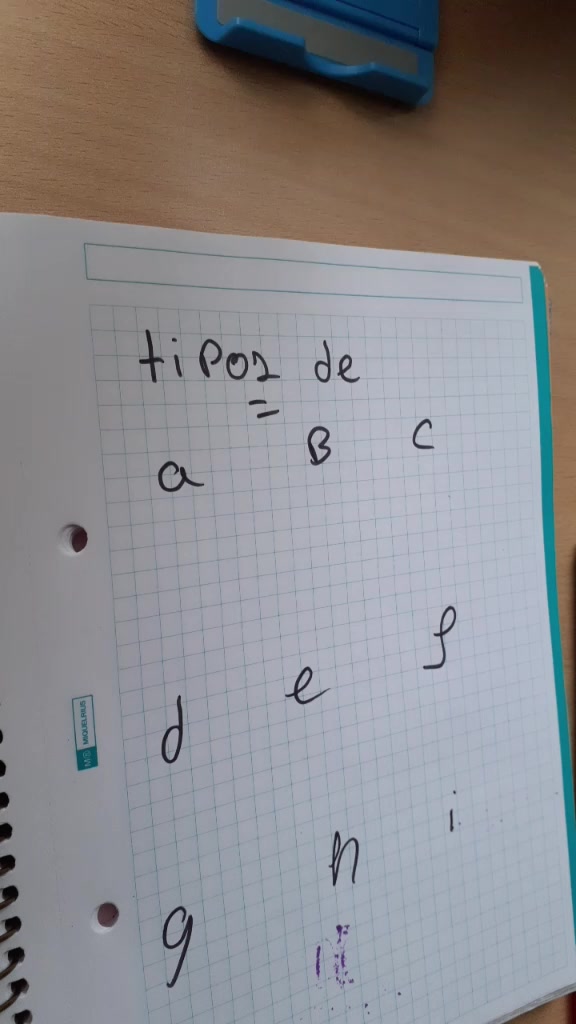 tipos de
a B C
d e f
g h i
MIQUELRIUS